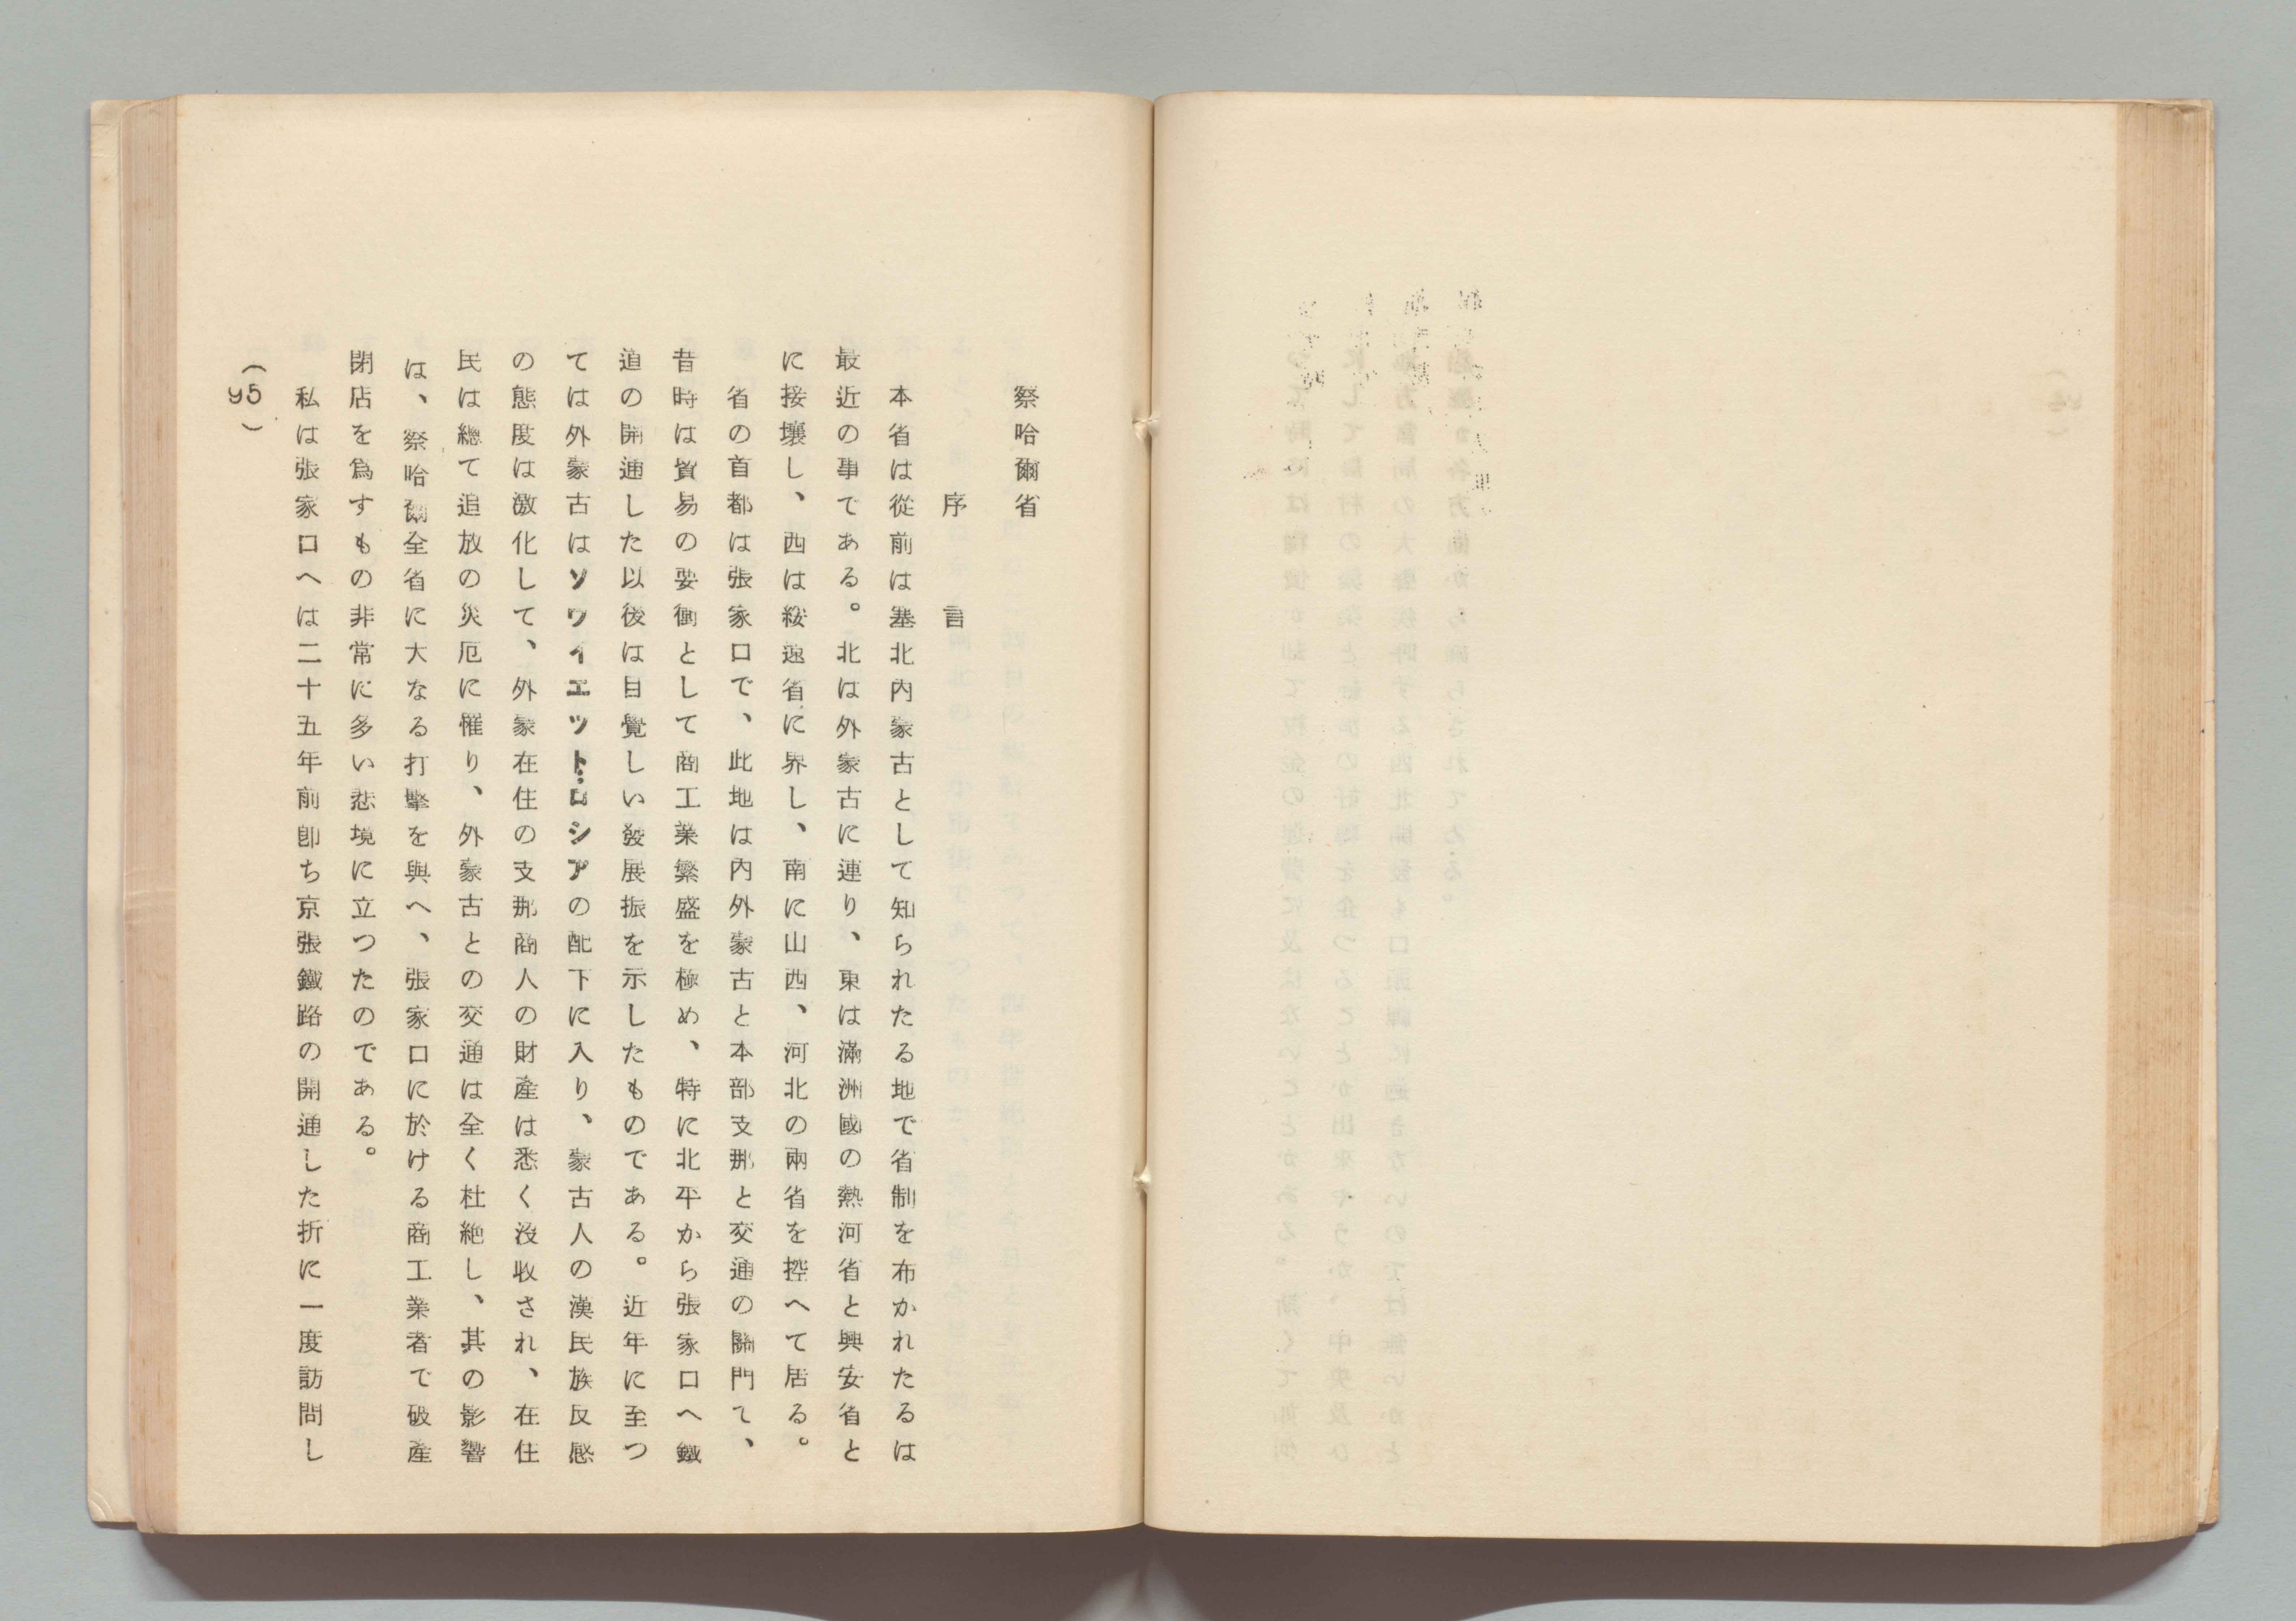 察哈爾省
序言
本省は從前は塞北内蒙古として知られたる地で省制を布かれたるは
最近の事である。北は外蒙古に連り、東は滿洲國の熱河省と興安省と
に接壤し、西は綏遠省に界し、南に山西、河北の兩省を控へて居る。
省の首都は張家口で、此地は内外蒙古と本部支那と交通の關門て、
昔時は貿易の要衝として商工業繁盛を極め、特に北平から張家口へ鐵
道の開通した以後は目覺しい發展振を示したものである。近年に至つ
ては外蒙古はソワイエツト・ロシアの配下に入り、蒙古人の漢民族反感
の態度は激化して、外蒙在住の支那商人の財產は悉く沒收され、在住
民は總て追放の災厄に罹り、外蒙古との交通は全く杜絶し、其の影響
は、察哈爾全省に大なる打擊を與へ、張家口に於ける商工業者で破產
閉店を爲すもの非常に多い悲境に立つたのである。
私は張家口へは二十五年前卽ち京張鐵路の開通した折に一度訪問し
(95)